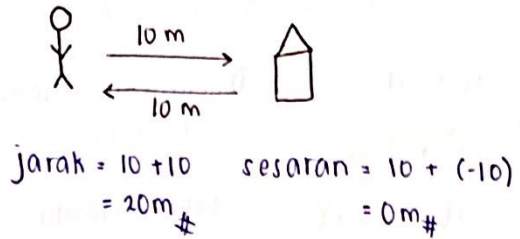 10 m
10 m
jarak = 10 + 10 sesaran = 10 + (-10)
= 20m # = 0m #